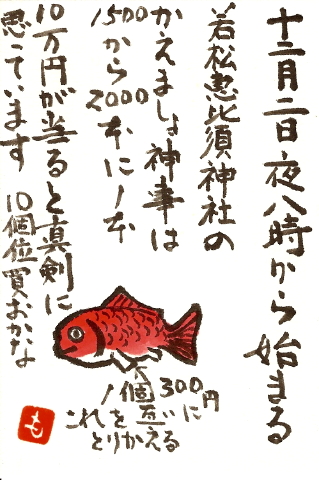 十二月二日夜八時から始まる
若松恵比須神社の
かえましょ神事は
1500
から2000本に1本
10万円が当ると真剣に
思っています
10個位買おかな
1個300円
これを互いに
とりかえる
も